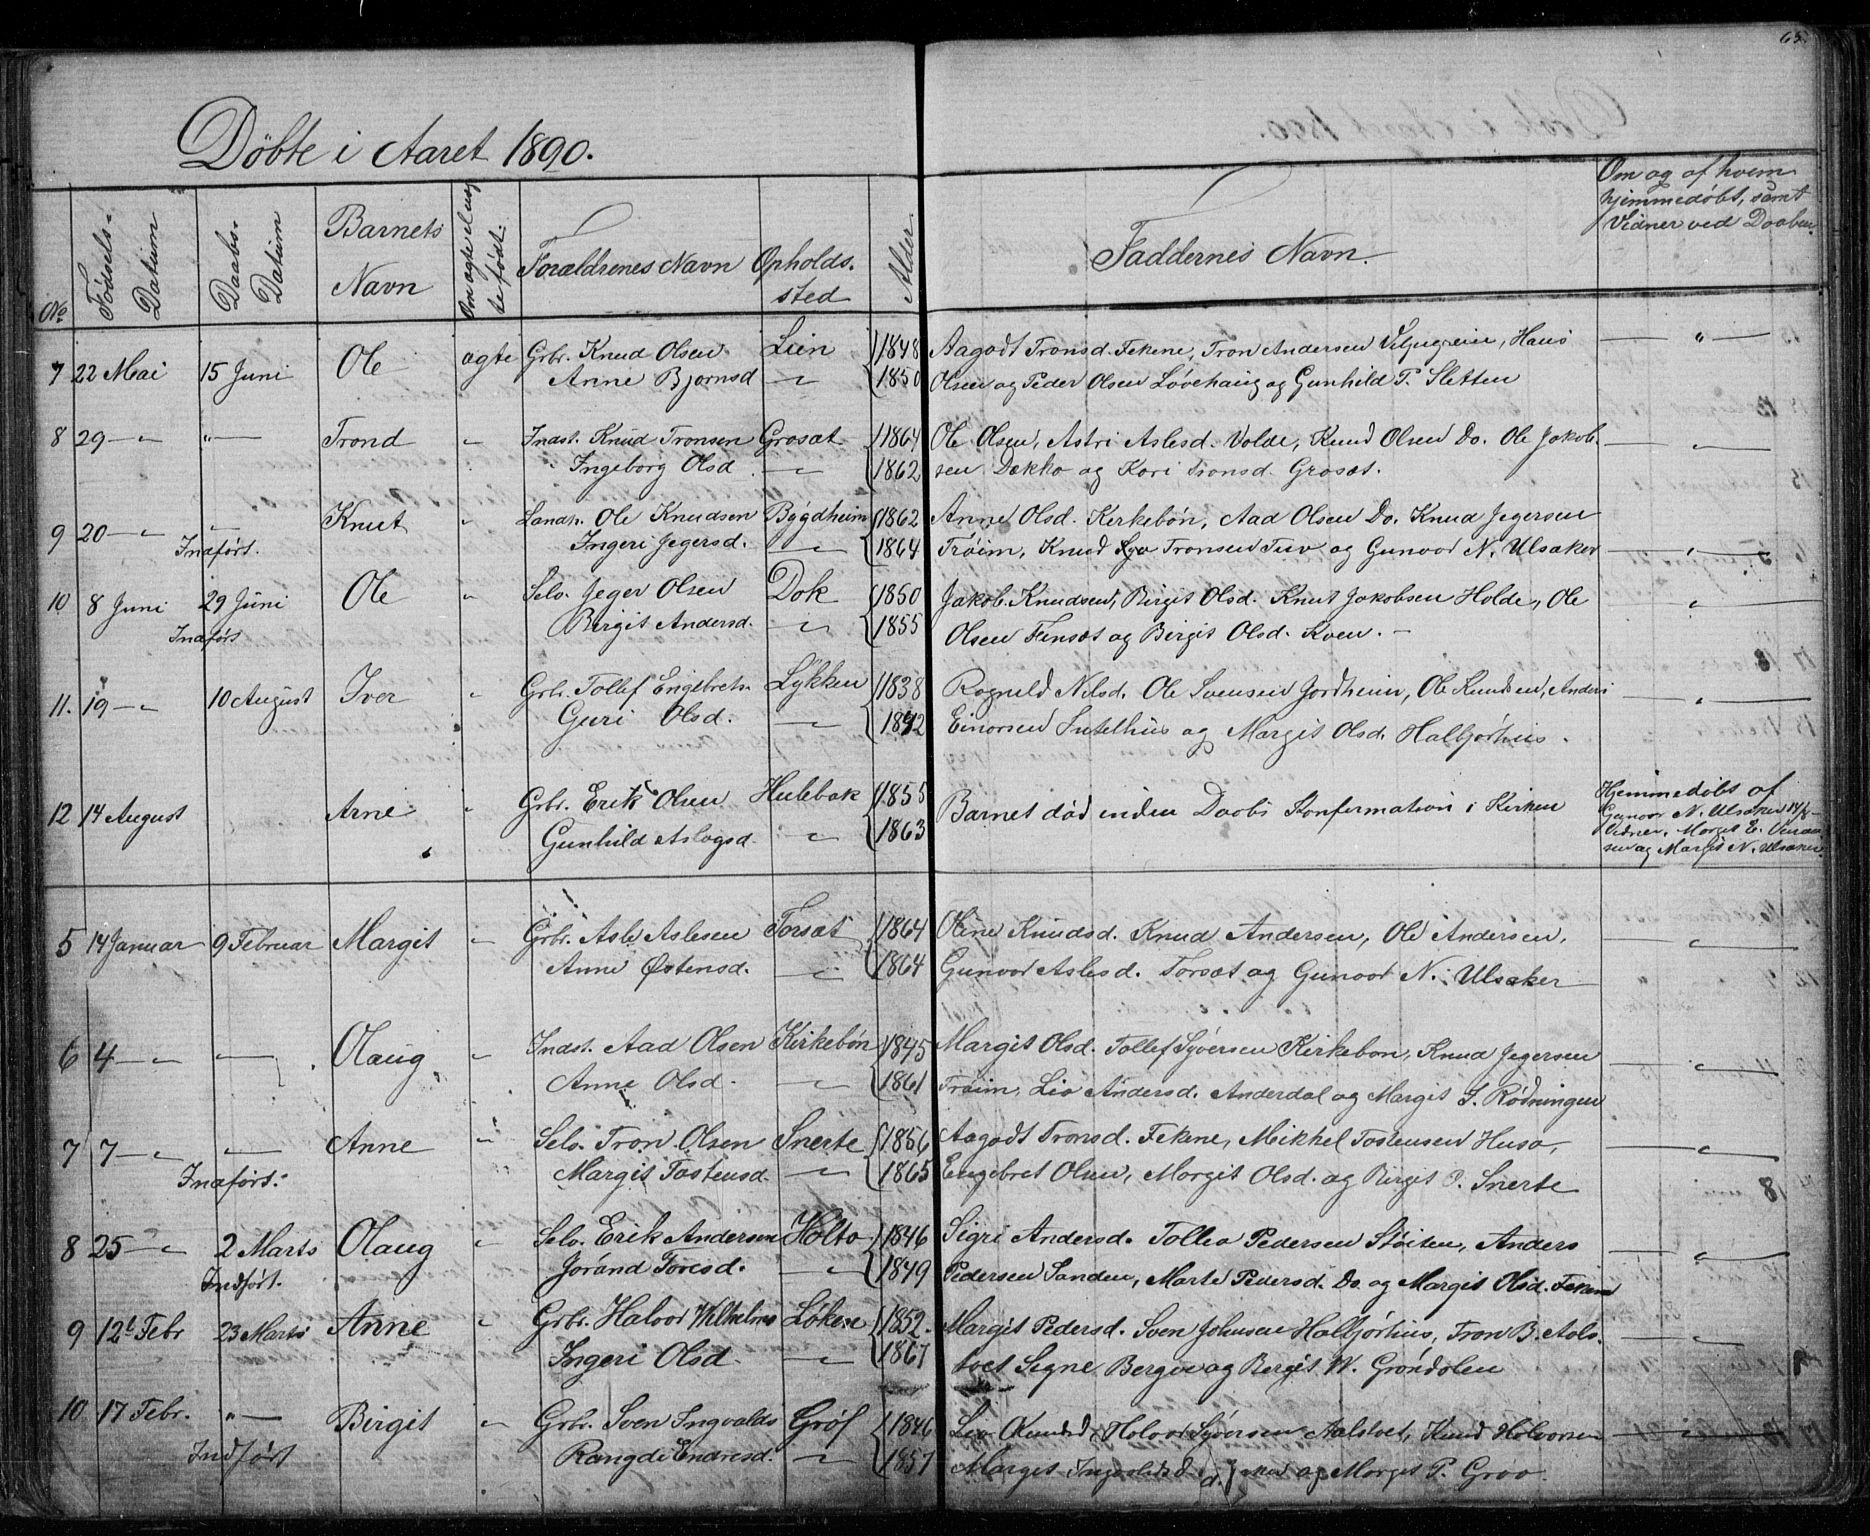 65.
Døbte i Aaret 1890.
No
Fødsels-
Datium
Daabs-
Datium
Barnets
Navn
Om ægte el uæg
te født.
Forældrenes Navn
Opholds.
sted
Alder
Faddernes Navn.
Om og af hvem
hjemmedøbt, samt
Vidner ved Daaben
7 22 Mai 15 Juni Ole ægte Grbr. Knud Olsen Lien 1848 Aagodt Tronsd. Fekene, Tron Andersen Hans — " —
Anne Bjørnsd — " — 1850 Olsen og Peder Olsen Løvehaug og Gunhild P. Sletten
8 29 — " — " — Trond " Indst. Knud Tronsen Grøsæt 1864 Ole Olsen, Astri Aslesd. Volde, Knud Olsen Do. Ole Jakob- — " —
Ingeborg Olsd — " — 1862 sen Dekko og Kari Tronsd. Grøsæt.
9 20 — " — " — Knut " Landh. Ole Knudsen Bygdheim 1862 Anne Olsd. Kirkebøn, Aad Olsen Do. Knud Jegersen
Indført. Ingeri Jegersd. — " — 1864 Trøim, Knud Tronsen Tuv og Gunvor N. Ulsaker — " —
10 8 Juni 29 Juni Ole " Selv. Jeger Olsen Dok 1850 Jakob Knudsen, Birgit Olsd. Knut Jakobsen Holde, Ole — " —
Indført Birgit Andersd. — " — 1855 Olsen Finsæt og Birgit Olsd. Kven. —
11. 19 — " — 10 August Iver " Grbr. Tollef Engebrets. Løkken 1838 Rogneld Nilsd. Ole Svensen Jordheim, Ole Knudsen, Anders — " —
Guri Olsd. — " — 1842 Einarsen Sutelhus og Margit Olsd. Halbjørhus.
12 14 August Arne " Grbr. Erik Olsen Hulebak 1855 Barnet død inden Daabs Konfirmation i Kirken Hjemmedøbt af
Gunvor N. Ulsaker 14/8
Gunhild Aslagsd. — " — 1863 Vidner. Margit E.
sen og Margit N. Ulsaker.
5 14 Januar 9 Februar Margit " Grbr. Asle Aslesen Torsæt 1864 Oline Knudsd. Knud Andersen, Ole Andersen, — " —
Anne Østensd. — " — 1864 Gunvor Aslesd. Torsæt og Gunvor N. Ulsaker
6 4 — " — — " — Olaug " Indst. Aad Olsen Kirkebøn 1845 Margit Olsd. Tollef Syversen Kirkebøn, Knud Jegersen — " —
Anne Olsd. — " — 1861 Trøim, Liv Andersd. Anderdal og Margit S. Rødningen
7 7 — " — — " — Anne " Selv. Tron Olsen Snerte 1856 Aagodt Tronsd. Fekene, Mikkel Tostensen Huso, — " —
Indført. Margit Tostensd. — " — 1865 Engebret Olsen, Margit Olsd. og Birgit P. Snerte
8 25 — " — 2 Marts Olaug " Selv. Erik Andersen Holto 1846 Sigri Andersd. Tolleiv Pedersen Støiten, Anders — " —
Indført. Jørand Toresd. — " — 1849 Pedersen Sanden, Marte Pedersd. Do. og Margit Olsd. Fekene
9 12t Febr 23 Marts Anne " Grbr. Halvor Wilhelms Løken 1852. Margit Pedersd. Sven Johnsen Halbjørhus, Tron B. Aals- — " —
Ingeri Olsd. — " — 1867 tvet Signe Bergve og Bergit W. Grøndalen
10 17 Febr. " — Birgit " Grbr. Sven Ingvalds Grøf 1846 Liv Knudsd, Halvor Syversen Aalstvet, Knud Halvorsen — " —
Indført Rangdi Endresd. — " — 1857 Margit og Margit P. Grøv.